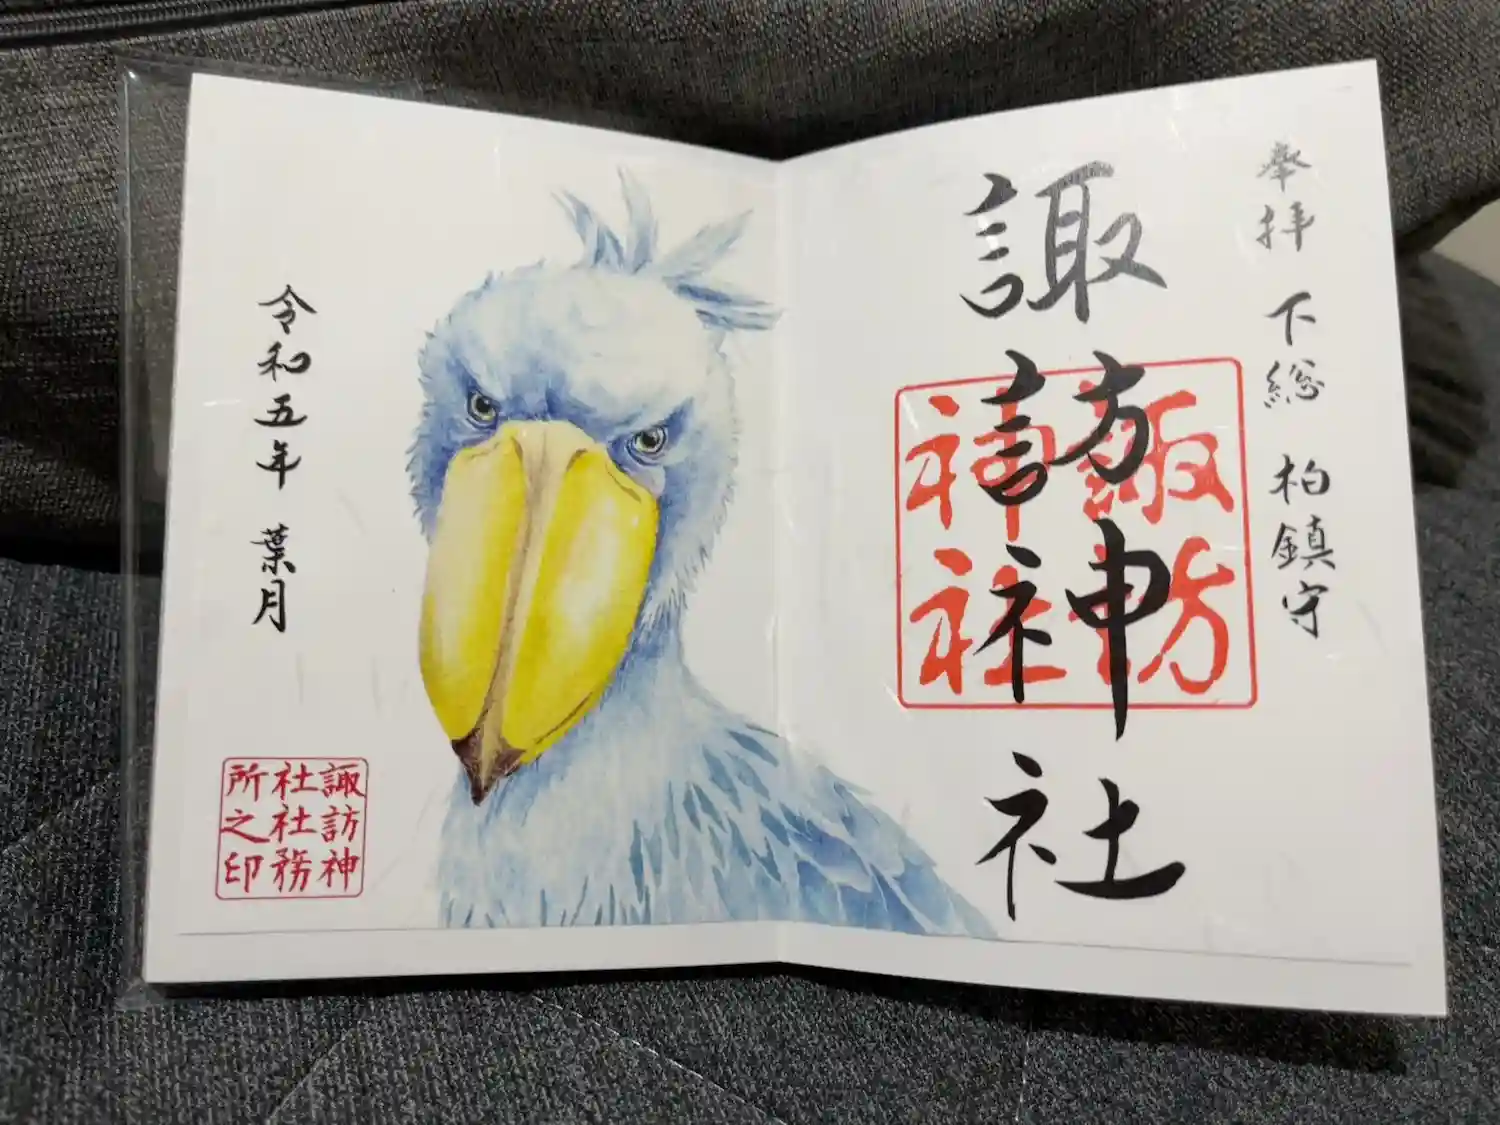 奉拝 下総 柏鎮守
諏訪神社
諏訪
神社
令和五年 葉月
諏訪神
社社務
所之印